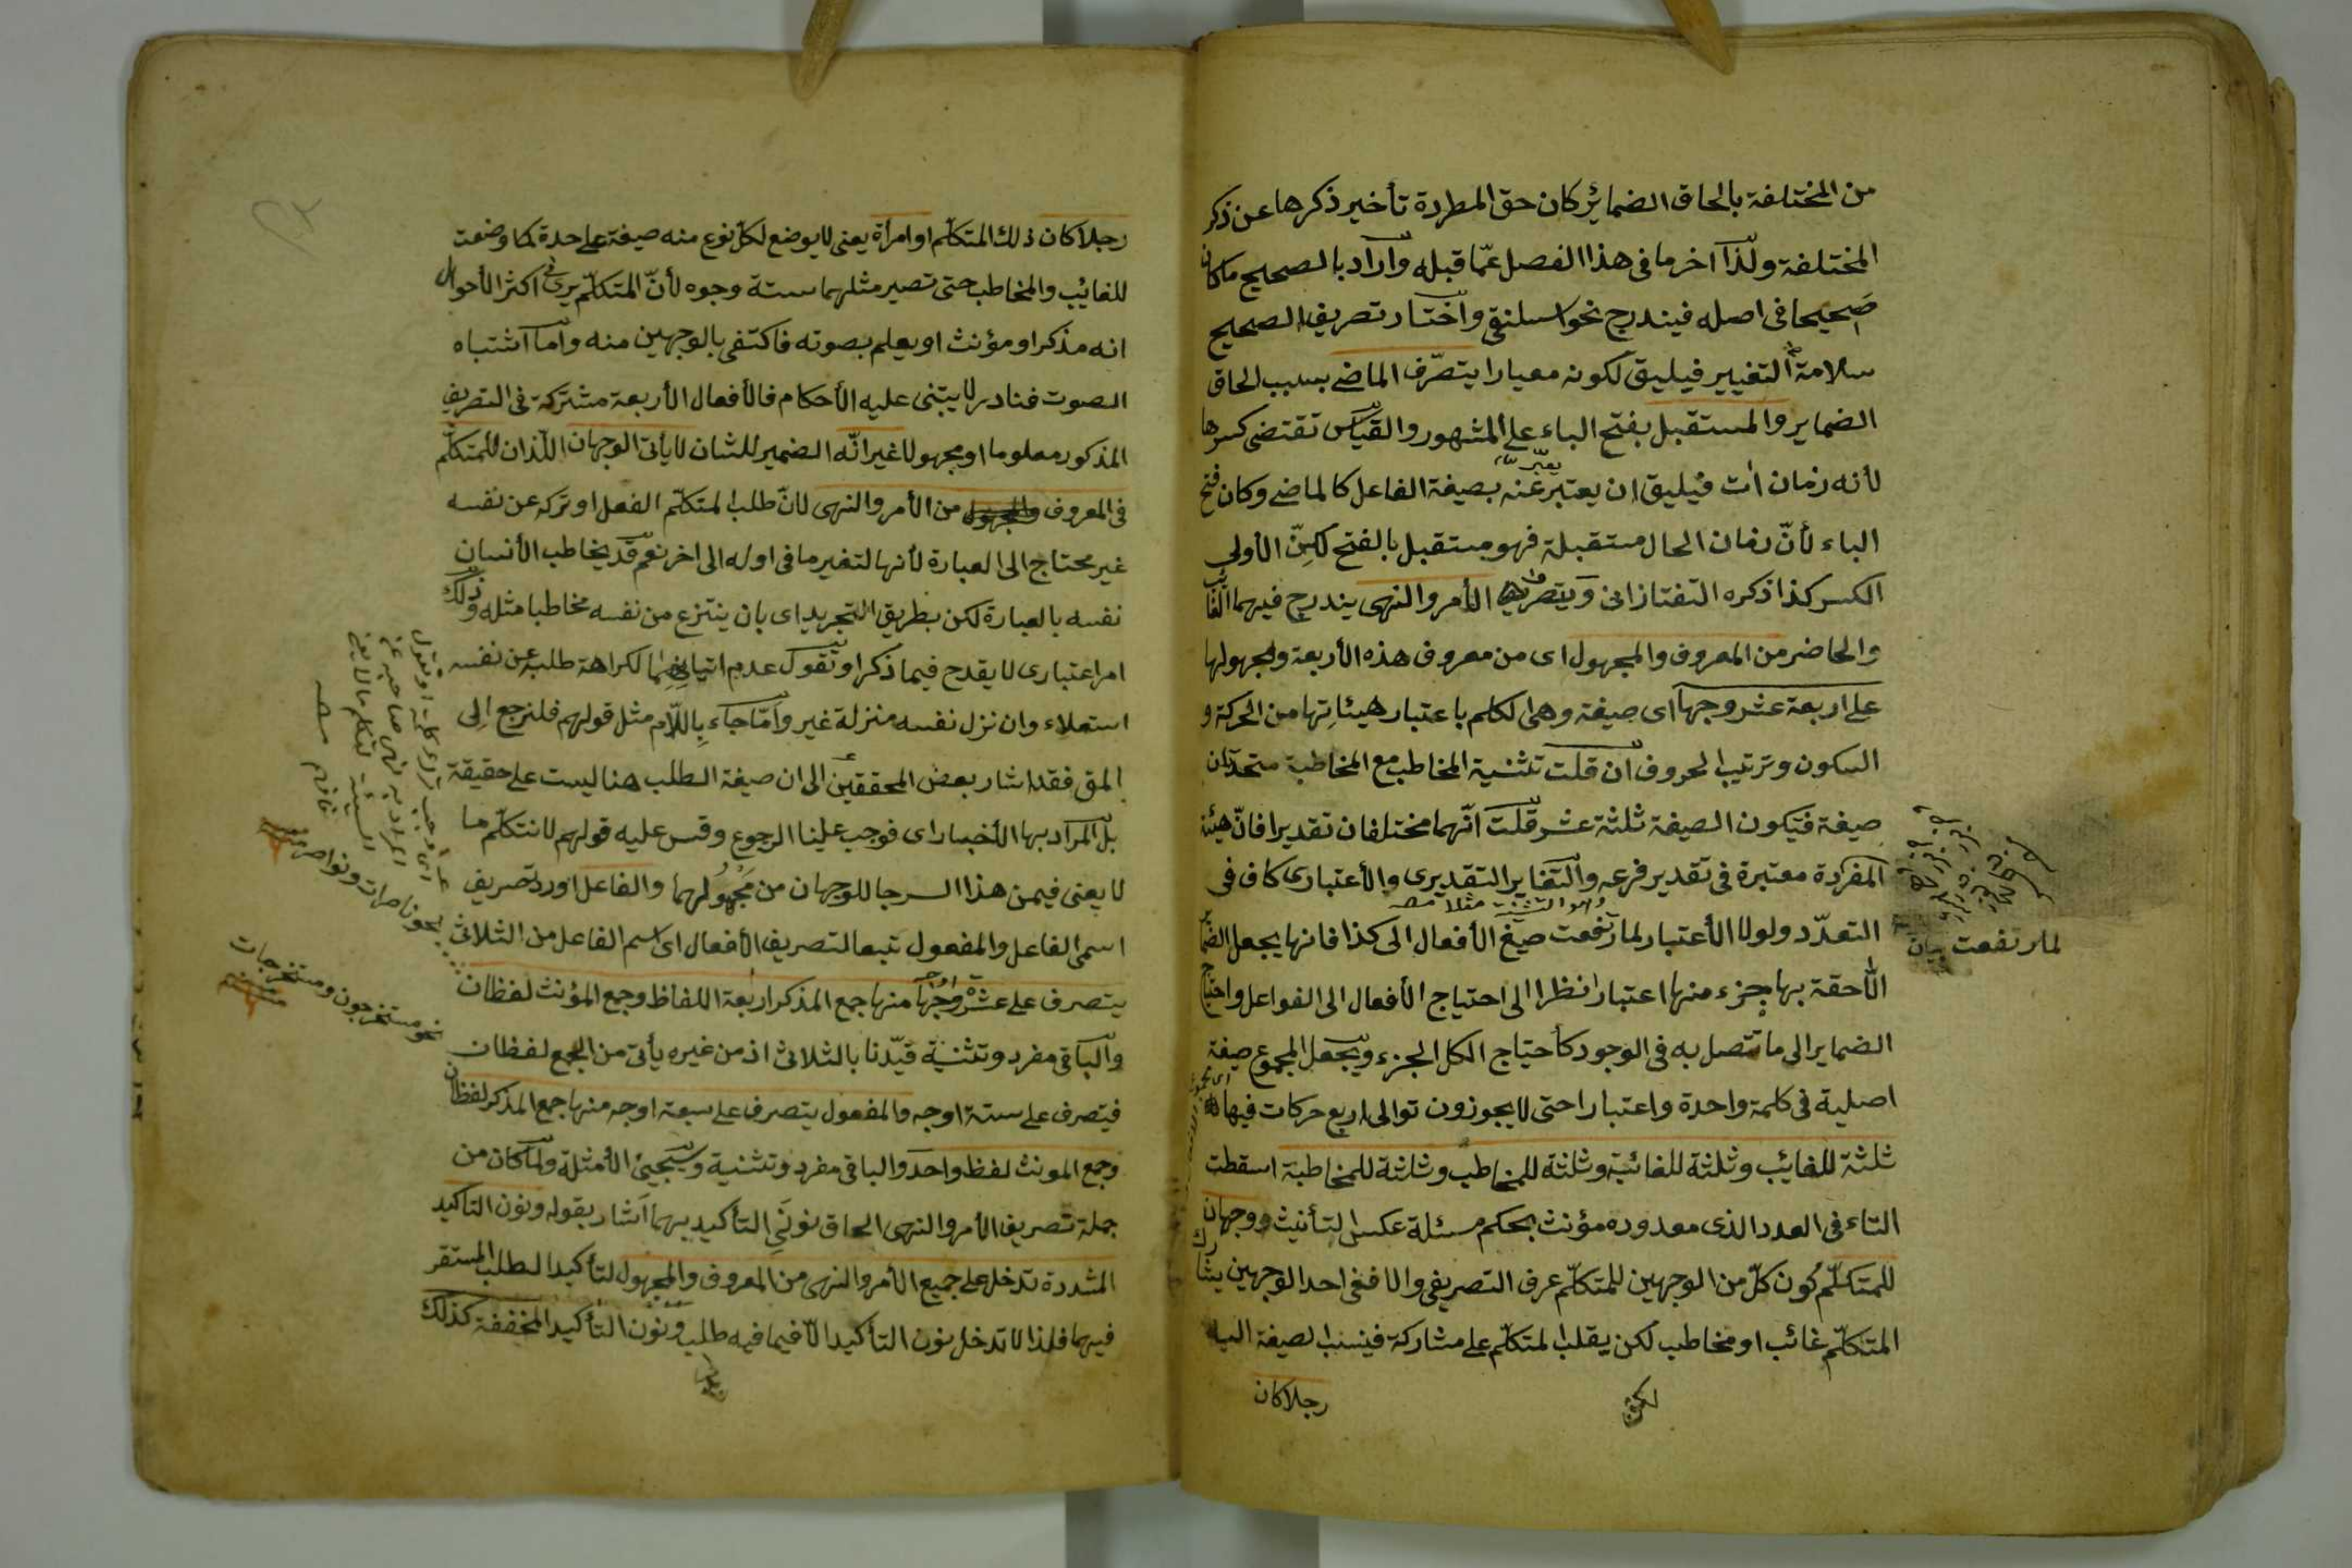 من المختلفة بالحاق الضمائر كان حق المطردة تأخير ذكرها عن ذكر
المختلفة ولذا اخر ما فى هذا الفصل عمّا قبله واراد بالصحيح ما كان
صحيحا فى اصله فيندرج نحو اسلنقى واختار تصريف الصحيح
سلامة التغيير فيليق لكونه معيارا يتصرّف الماضى بسبب الحاق
الضماير والمستقبل بفتح الباء على المشهور والقياس تقتضى كسرها
لأنه زمان ات فيليق ان يعتبر عنه بصيغة الفاعل كالماضى وكان فتح
الباء لأنّ زمان الحال مستقبلة فهو مستقبل بالفتح لكنّ الأولى
الكسر كذا ذكره التفتازانى الأمر والنهى يندرج فيهما الغائب
والحاضر من المعروف والمجهول اى من معروف هذه الأربعة ومجهولها
على اربعة عشر وجها اى صيغة وهى الكلم باعتبار هيئاتها من الحركة و
السكون وترتيب الحروف ان قلت تثنية المخاطب مع المخاطبة متحدتان
صيغة فتكون الصيغة ثلثة عشر قلت انّهما مختلفان تقديرا فانّ هيئة
المفردة معتبرة فى تقدير فرعه والتغاير التقديرى والأعتبارى كاف فى
التعدّد ولولا الأعتبار لما رتفعت صيغ الأفعال الى كذا فانها يجعل الضماير
اللّاحقة بها جزء منها اعتبارا نظرا الى احتياج الأفعال الى الفواعل واحتياج
الضماير الى ما تتصل به فى الوجود كأحتياج الكل الجزء ويجعل المجموع صيغة
اصلية فى كلمة واحدة واعتبارا حتى لا يجوزون توالى اربع حركات فيها
ثلثة للغائب وثلثة للغائبة وثلثة للمخاطب وثلثة للمخاطبة اسقطت
التاء فى العدد الذى معدوده مؤنث بحكم مسئلة عكس التأنيث ووجهان
للمتكلّم كون كلّ من الوجهين للمتكلّم عرف التصريفى والا ففى احد الوجهين يشارك
المتكلّم غائب او مخاطب لكن يقلب المتكلّم على مشاركة فينسب الصيغة اليه
رجلا كان
لما رتفعت
رجلا كان ذلك المتكلّم او امرأة يعنى لا يوضع لكلّ نوع منه صيغة على حدة كما وضعت
للغائب والمخاطب حتى تصير مثلهما ستة وجوه لأنّ المتكلّم يرى فى اكثر الأحوال
انه مذكر او مؤنث او يعلم بصوته فاكتفى بالوجهين منه واما اشتباه
الصوت فنادر لا يبتنى عليه الأحكام فالأفعال الأربعة مشتركة فى التصريف
المذكور معلوما او مجهولا غير انّه الضمير للشان لا يأتى الوجهان اللّذان للمتكلّم
فى المعروف من الأمر والنهى لانّ طلب المتكلّم الفعل او تركه عن نفسه
غير محتاج الى العبارة لأنها لتغير ما فى اوله الى اخر نعم قد يخاطب الأنسان
نفسه بالعبارة لكن بطريق التجريد اى بان ينتزع من نفسه مخاطبا مثله وذلك
امر اعتبارى لا يقدح فيما ذكر او تقول عدم اتيانهما لكراهة طلبه عن نفسه
استعلاء وان نزل نفسه منزلة غير وامّا جاء باللّام مثل قولهم فلنرجع الى
المق فقد اشار بعض المحققين الى ان صيغة الطلب هنا ليست على حقيقة
بل المراد بها الأخبار اى فوجب علينا الرجوع وقس عليه قولهم لا نتكلّم ما
لا يعنى فيمن هذا السر جا للوجهان من مجهولهما والفاعل اورد تصريف
اسمى الفاعل والمفعول تبعا لتصريف الأفعال اى اسم الفاعل من الثلاثى
يتصرف على عشرة اوجه منها جمع المذكر اربعة الفاظ وجمع المؤنث لفظان
والباقى مفرد وتثنية قيّدنا بالثلاثى اذ من غيره يأتى من الجمع لفظان
فيتصرف على ستة اوجه والمفعول يتصرف على سبعة اوجه منها جمع المذكر لفظان
وجمع المونث لفظ واحد والباقى مفرد وتثنية وسيجئ الأمثلة ولمّا كان من
جملة تصريف الأمر والنهى الحاق نونَىِ التأكيد بهما اشار بقوله ونون التاكيد
المشددة تدخل على جميع الأمر والنهى من المعروف والمجهول لتأكيد الطلب المستقر
فيهما فلذا لا تدخل نون التأكيد الّا فيما فيه طلب ونون التأكيد المخففة كذلك
نحو ناصرات ونواصر
نحو مستخرجون ومستخرجات